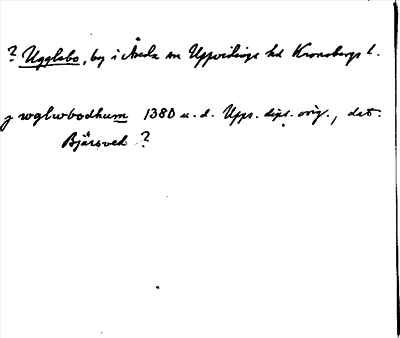 ? Ugglebo, by i Åseda sn Uppvidinge hd Kronobergs l.
j wglwbodhum 1380 u. d. Upps. dipl. orig., dat.
Bjärsved ?